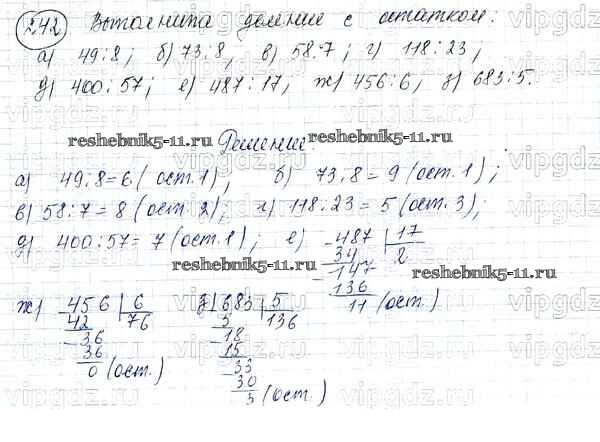 242 Выполните деление с остатком:
а) 49:8; б) 73:8, в) 58:7; г) 118:23,
д) 400:57; е) 487:17, ж) 456:6, з) 683:5.
reshebnik5-11.ru Решение: reshebnik5-11.ru
а) 49:8=6 (ост.1), б) 73:8=9 (ост.1);
в) 58:7=8 (ост.2); г) 118:23=5 (ост.3);
д) 400:57=7 (ост.1); е) 487 17
34 2
reshebnik5-11.ru 147 reshebnik5-11.ru
136
11 (ост.)
ж) 456 6 з) 683 5
42 76 5 136
36 18
36 15
0 (ост.) 33
30
3 (ост.)
vipgdz.ru